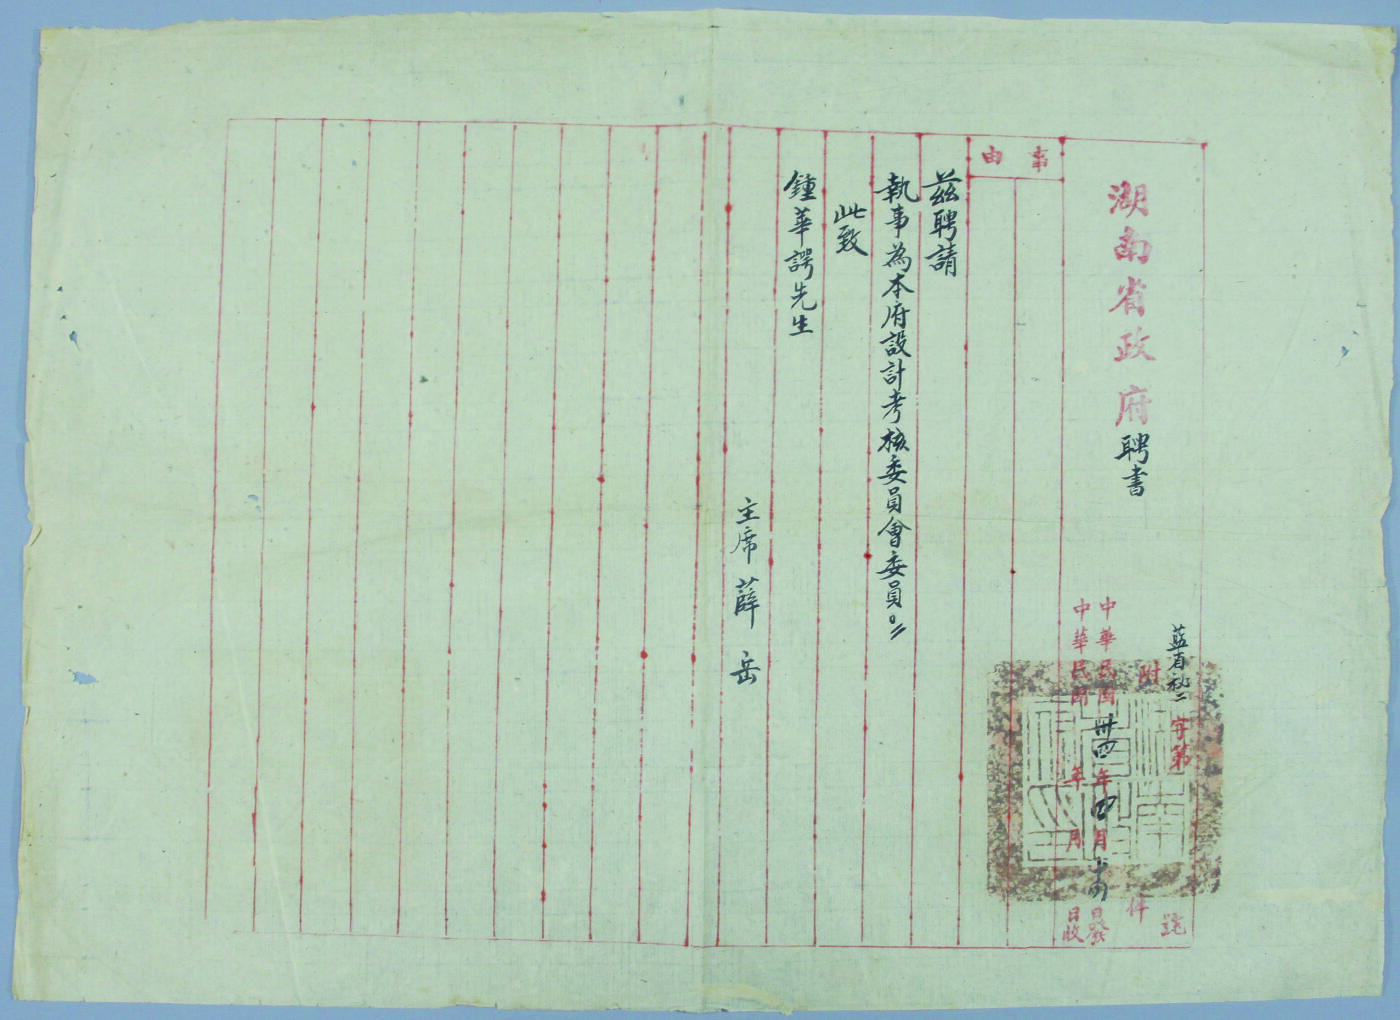 湖南省政府聘書
藍省秘二字第 號
附 件
中華民國卅四年四月十四日發
中華民國 年 月 日收
事由
茲聘請
執事為本府設計考核委員會委員。
此致
鍾華諤先生
主席 薛岳